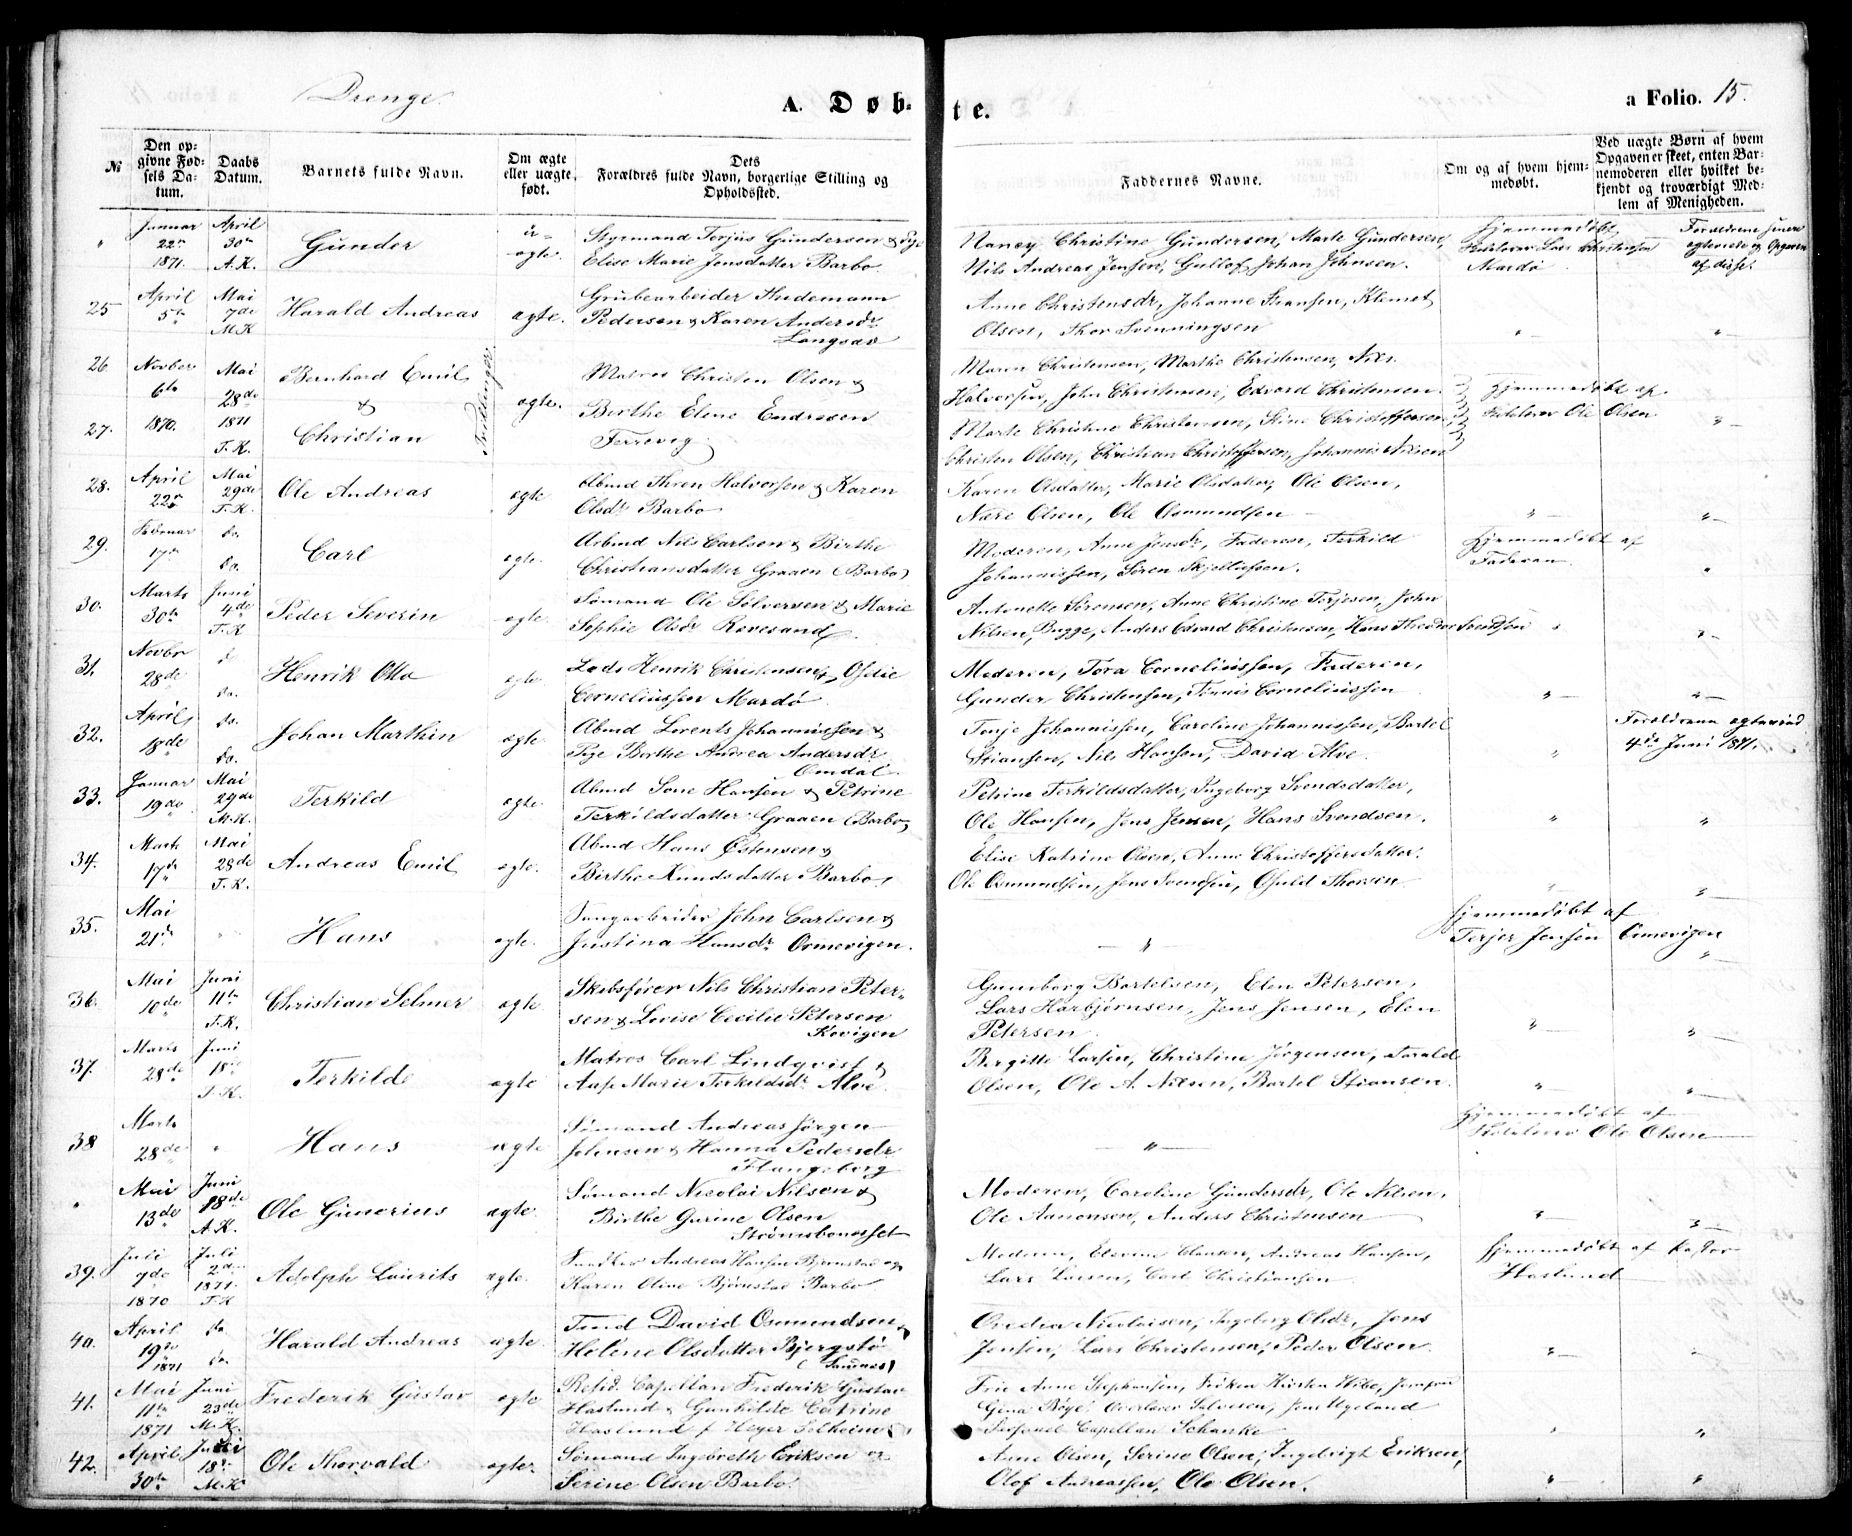 Drenge.
A. Døb-
te.
a Folio. 15.
№
Den opgivne Fødsels Datum.
Daabs Datum.
Barnets fulde Navn.
Om ægte eller uægte født.
Dets Forældres fulde Navn, borgerlige Stilling og Opholdssted.
Faddernes Navne.
Om og af hvem hjemmedøbt.
Ved uægte Børn af hvem Opgaven er skeet, enten Barnemoderen eller hvilket bekjendt og troværdigt Medlem af Menigheden.
" Januar 22de 1871. April 30te A.K. Gunder uægte.
Styrmand Terjus Gundersen & Pige
Elise Marie Jensdatter Barbo.
Nancy Christine Gundersen, Marte Gundersen,
Nils Andreas Jensen, Gullof Johan Johnsen.
Hjemmedøbt
Skolelærer Lars Christensen
Mardø
Forældrene senere
ægteviede og Opgaven
af disse.
25 April 5te Mai 7de M.K Harald Andreas ægte.
Grubearbeider Thidemann
Pedersen & Karen Andersdr
Langsæv
Anne Christensdr, Johanne Hansen, Klemet
Olsen, Thor Svenningsen
26. Novber 6te 1870. Mai 28de 1871 T.K. Bernhard Emil
&
27. Christian
Tvillinger
ægte.
Matros Christen Olsen &
Birthe Eline Endresen
Terrevig
Maren Christensen, Marthe Christensen, Nils
Halvorsen, John Christensen, Edvard Christensen
Marte Christine Christensen, Stine Christoffersen,
Christen Olsen, Christian Christoffersen, Johannis Nilsen
Hjemmedøbt af
Skolelærer Ole Olsen
28. April 22de Mai 29de T.K. Ole Andreas ægte
Arbmd Thren Halvorsen & Karen
Olsdr Barbo
Karen Olsdatter, Marie Olsdatter, Ole Olsen,
Nære Olsen, Ole Osmundsen
29. Februar 17de do. do. Carl ægte.
Arbmd Nils Carlsen & Birthe
Christiansdatter Graaen (Barbo)
Moderen, Anne Jensdr, Faderen, Terkild
Johannissen, Søren Skjellufsen.
Hjemmedøbt af
Faderen
30. Marts 30te Juni 4de T.K Peder Severin ægte.
Sømand Ole Sølversen & Marie
Sophie Olsdr Revesand
Antonette Sørensen, Anne Christine Terjesen, John
Nilsen, Bugge, Anders Edvard Christensen, Hans Theodor Svendsen
31. Novbr 28de do. Henrik Otto ægte
Lods Henrik Christensen & Oselie
Corneliussen Mardø
Moderen, Tora Corneliussen, Faderen,
Gunder Christensen, Tønnis Corneliussen
32. April 18de do. do. Johan Marthin ægte
Abmd Lorents Johannissen &
Pige Birthe Andrea Andersdr
Omdal.
Tonje Johannissen, Caroline Johannissen, Bartel
Stiansen, Nils Hansen, David Alve.
Forældrene ægteviede
4de Juni 1871.
33. Januar 19de Mai 29de M.K. Terkild ægte.
Abmd Sone Hansen & Petrine
Terkildsdatter Graaen (Barbo)
Petrine Terkildsdatter, Ingeborg Svendsdatter,
Ole Hansen, Jens Jensen, Hans Svendsen.
34. Marts 17de Mai 28de T.K. Andreas Emil ægte.
Abmd Hans Østensen &
Birthe Knudsdatter Barbo
Elise Katrine Olsen, Anne Christoffersdatter.
Ole Osmundsen, Jens Svendsen, Osuld Thorsen
35. Mai 21de Hans ægte.
John Carlsen &
Justina Hansdr Ormevigen.
Hjemmedøbt af
Terjer Jensen Ormevigen
36. Mai 10de Juni 11te T.K. Christian Selmer ægte
Skibsfører Nils Christian Peter-
sen & Lovise Cecilie Petersen
Kovigen
Gunborg Bartelsen, Elen Petersen,
Lars Harbjørnsen, Jens Jensen, Elen
Petersen
37. Marts 28de Juni 18de T.K. Terkilde ægte
Matros Carl Lindqvist &
Aase Marie Terkildsdr Alve.
Birgitte Larsen, Christine Jørgensen, Harald
Olsen, Ole A. Nilsen, Bartel Stiansen.
38 Marts 28de Hans ægte
Sømand Andreas Jørgen
Johnsen & Hanna Pedersdr
Flangeborg
Hjemmedøbt af
Skolelærer Ole Olsen
" Mai 13de Juni 18de A.K. Ole Gunerius ægte
Sømand Nicolai Nilsen &
Birthe Gurine Olsen
Strømsbonesset
Moderen, Caroline Gundersdr, Ole Nilsen,
Ole Aanonsen, Anders Christensen
39. Juli 7de 1870 Juli 2de 1871. T.K Adolph Laurits ægte.
Andreas Hansen Bjørnstad og
Karen Oline Bjørnstad Barbo
Moderen, Elevine Clausen, Andreas Hansen,
Lars Larsen, Carl Christiansen
Hjemmedøbt af Pastor
Haslund
40. April 19de 1871 do do. Harald Andreas ægte.
Tmd David Osmundsen &
Helene Olsdatter Bjergstø
(Sannes)
Oredia Nicolaisen, Ingeborg Olsdr, Jens
Jensen, Lars Christensen, Peder Olsen.
41. Mai 11te 1871 Juni 23de M.K. Frederik Gustav ægte
Resid. Capellan Frederik Gustav
Haslund & Gunhilde Catrine
Haslund f. Heyer Selheim
Frue Anne Stephansen, Frøken Kirsten Wibe, Jomfru
Gina Bøge, Overlærer Salvesen, Jens Ugeland
Personel Capellan Schanke
42. April 30te Juli 18de M.K Ole Thorvald ægte.
Sømand Ingebreth Eriksen og
Serine Olsen Barbo.
Anne Olsen, Serine Olsen, Ingebrigt Eriksen,
Olof Andreassen, Ole Olsen.